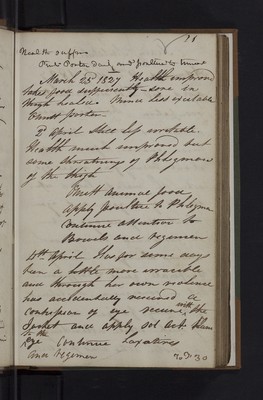 71
Health suffers
Pint Porter daily and poultice to
March 25th 1827 Health improved
takes food sufficiently sore in
thigh healed. Mind less excitable
Omitt porter.
2 April still less irritable.
Health much improved but
some threatnings of Phlegmon
of the thigh
Omitt animal food
apply poultice to Phlegmon
Continue attention to
Bowels and regimen
4th April Has for some days
been a little more irascible
and through her own violence
has accidentally received a
contusion of eye secure with the
Jacket and apply sol Act. Plum
to the
Eye Continue Laxatives
and regimen
30